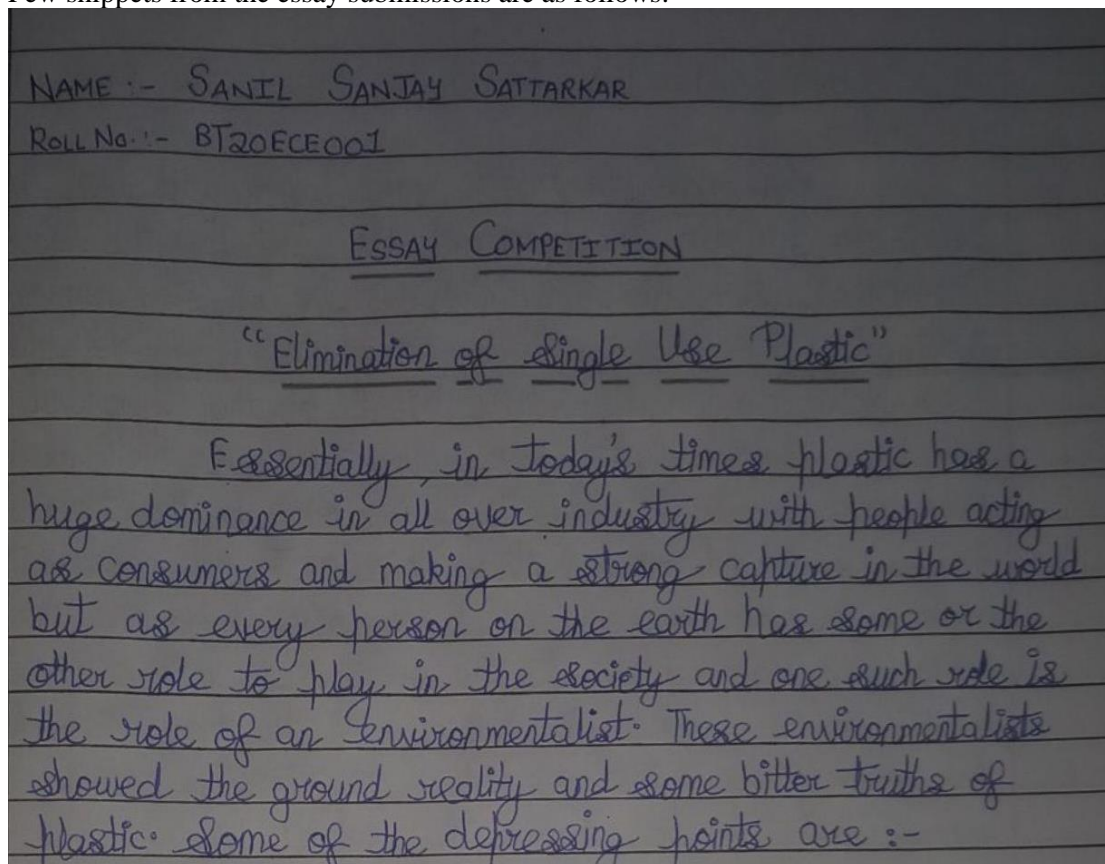 Few snippets from the essay submissions are as follows:
NAME :- SANIL SANJAY SATTARKAR
ROLL No. :- BT20ECE001
ESSAY COMPETITION
"Elimination of Single Use Plastic"
Essentially, in today's times plastic has a
huge dominance in all over industry with people acting
as consumers and making a strong capture in the world
but as every person on the earth has some or the
other role to play in the society and one such role is
the role of an environmentalist. These environmentalists
showed the ground reality and some bitter truths of
plastic. Some of the depressing points are :-